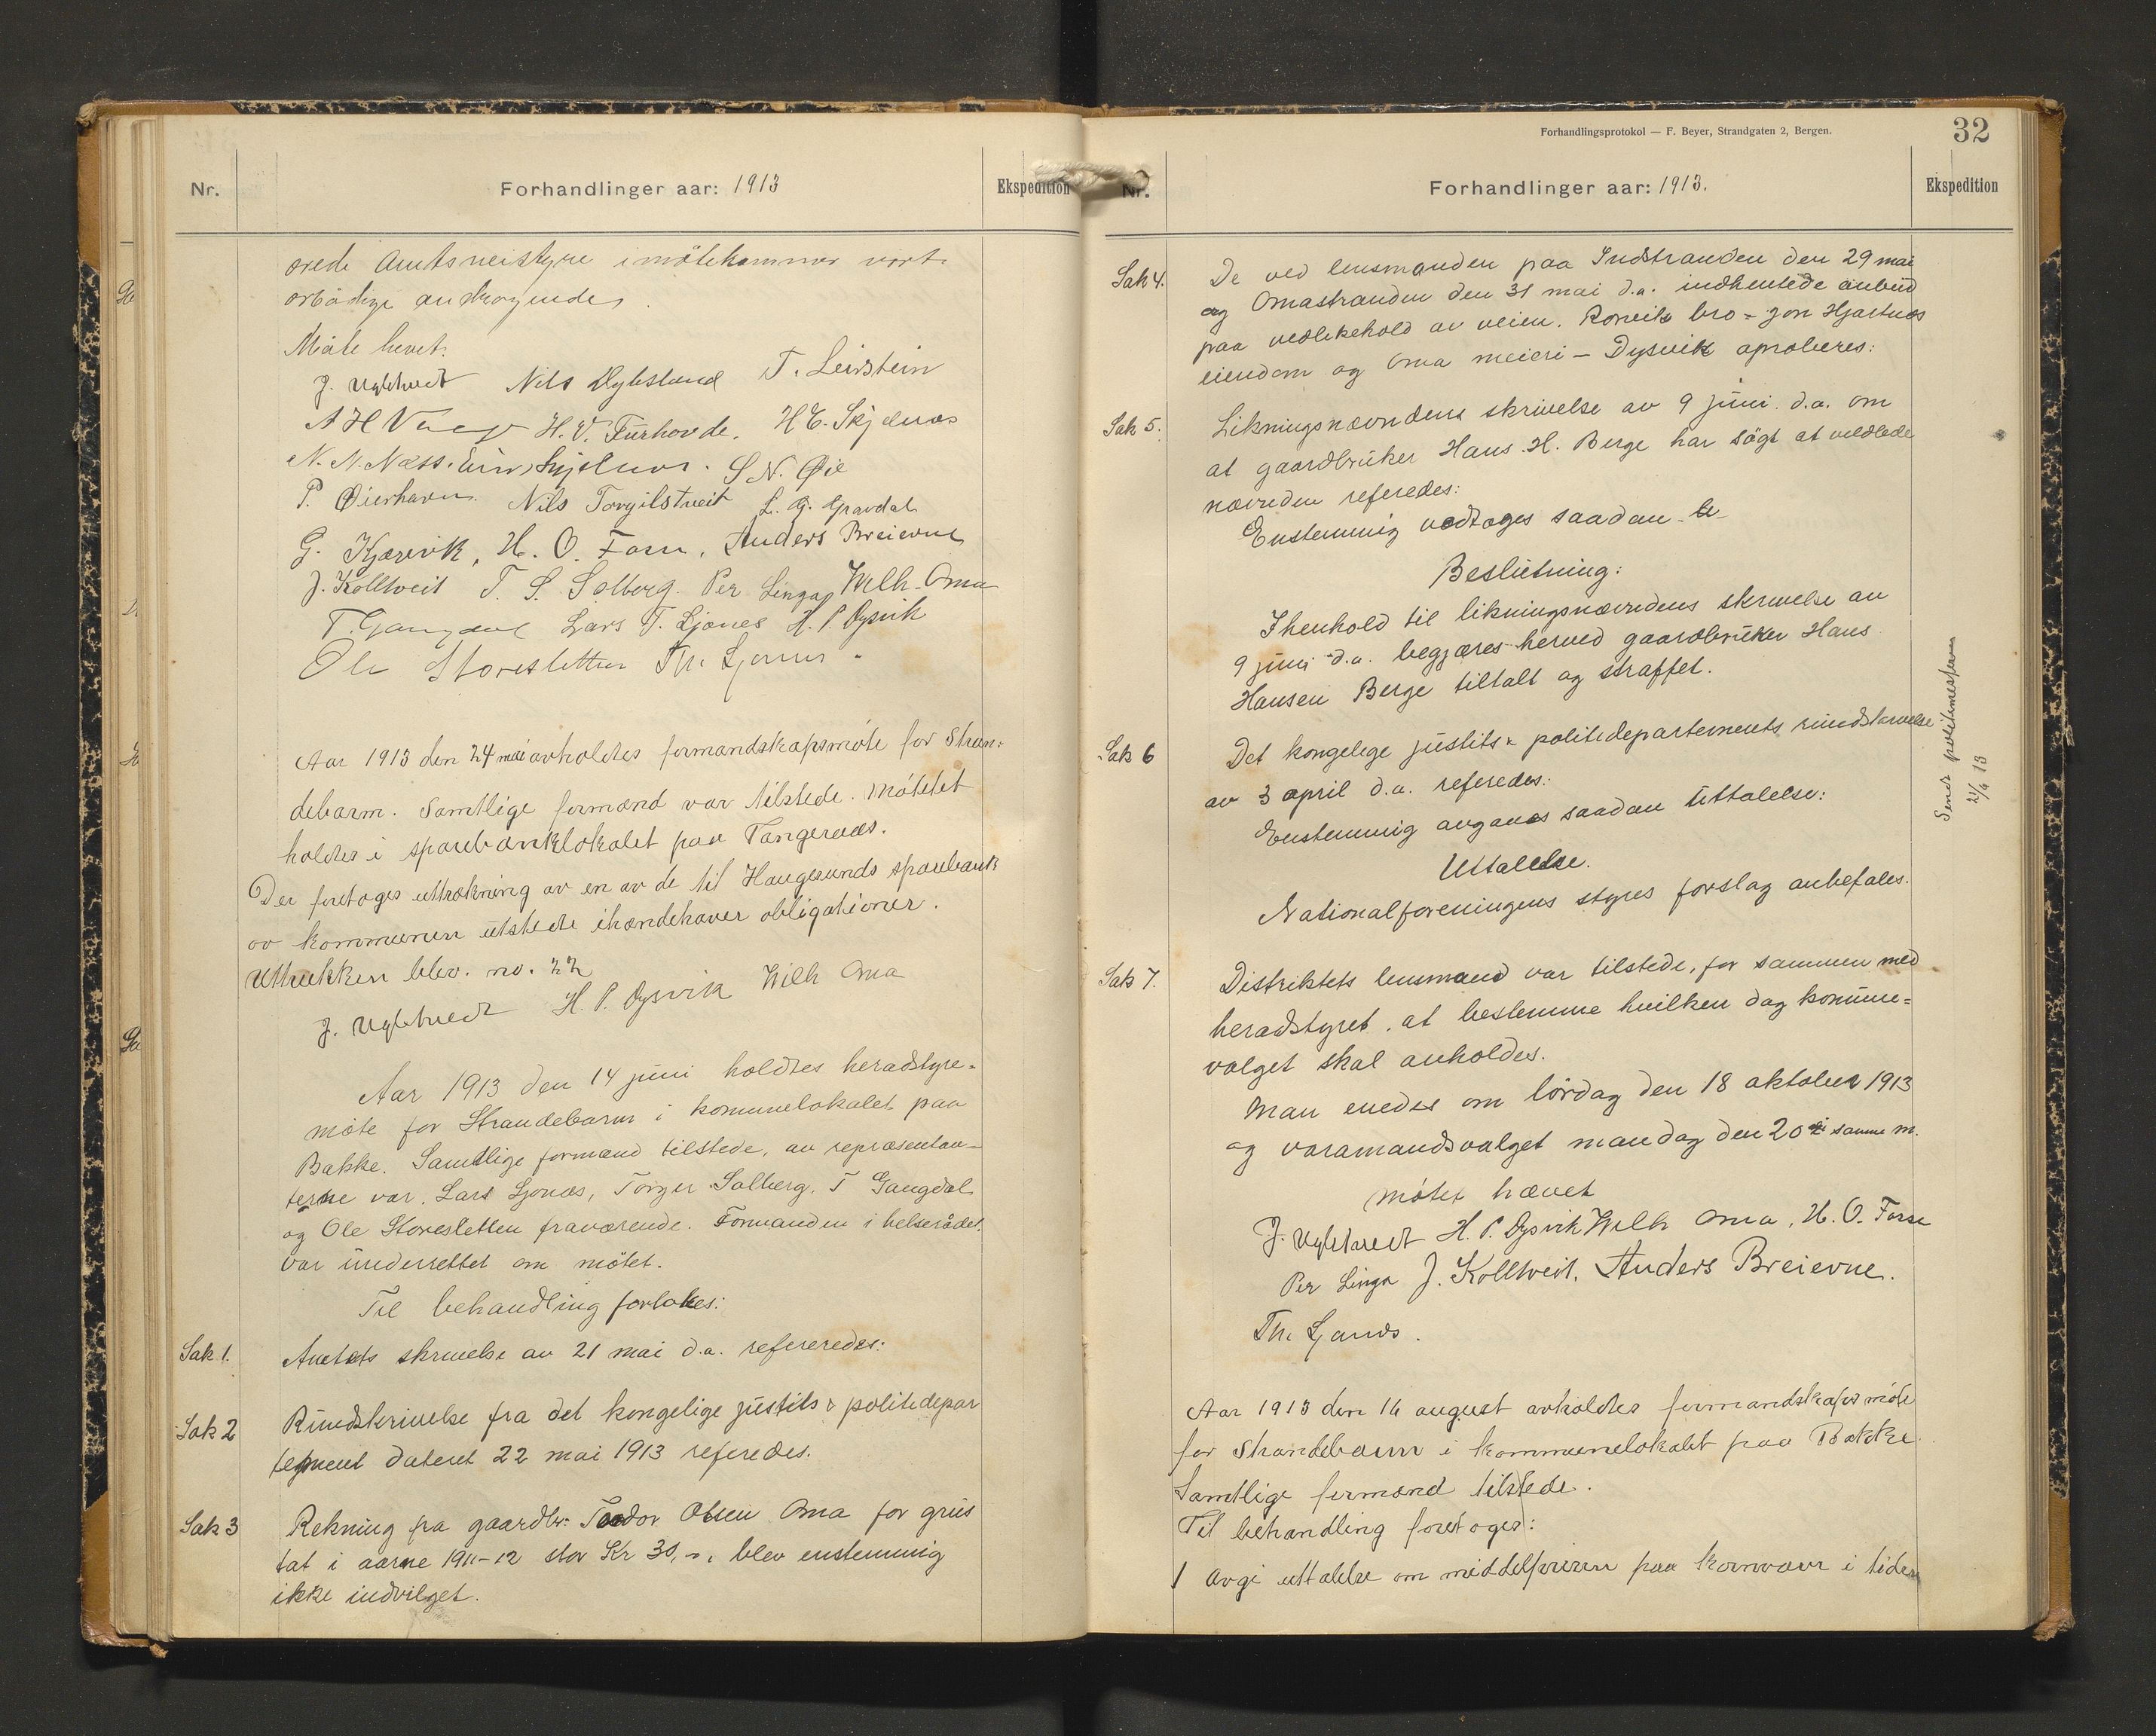 Nr.
Forhandlinger aar: 1913
Ekspedition
ærede Amtsveistyre imøtekommer vort
ærbødige andragende,
Møte hevet.
J. Uglhvedt Nils Øylisland T. Leirstein
H. V. Furhovde. H E. Skjelnæs
N. N. Næss. S N. Øie
P. Øierhavn. Nils Torgilstveit L. G. Gravdal
G. Kjærevik, H. O. Fosse, Anders Breievne
J. Kolltveit T. S. Solberg. Per Linga, Wilh. Oma
T. Gangdal Lars T. Ljones H. P. Dysvik
Ole Storesletten Th. Ljones.
Aar 1913 den 24 mai avholdtes formandskapsmøte for Stran-
debarm. Samtlige formænd var tilstede. Møtetet
holdtes i sparebanklokalet paa Tangeraas.
Der foretoges uttrækning av en av de til Haugesunds sparebank
av kommunen utstedte ihændehaver obligationer.
Uttrukken blev. no. 22
J. Uglhvedt H. P. Dysvik Wilh Oma
Aar 1913 den 14 juni holdtes heradstyre-
møte for Strandebarm i komunelokalet paa
Bakke. Samtlige formænd tilstede, av repræsentan-
terne var. Lars Ljonæs, Torger Solberg, T Gangdal
og Ole Storesletten fraværende. Formanden i helserådet
var underrettet om møtet.
Til behandling fortokes:
Sak 1. Amtets skrivelse av 21 mai d.a. refereredes:
Sak 2 Rundskrivelse fra det kongelige justits & politidepar
tement dateret 22 mai 1913 referedes.
Sak 3 Rekning fra gaardbr. Teodor Olsen Oma for grus
tat i aarne 1911-12 stor Kr 30,-, blev enstemmig
ikke indvilget.
Forhandlingsprotokol — F. Beyer, Strandgaten 2, Bergen.
32
Nr.
Forhandlinger aar: 1913.
Ekspedition
Sak 4. De ved lensmanden paa Indstranden den 29 mai
og Omastranden den 31 mai d.a. indhentede anbud
paa vedlikehold av veien. Ronvik bro - Jon Hjartnæs
eiendom og Oma meieri - Dysvik aproberes:
Sak 5. Likningsnævndens skrivelse av 9 juni d.a. om
at gaardbruker Hans H. Berge har søgt at vildlede
nævnden referedes:
Enstemmig vedtoges saadan
Beslutning:
Ihenhold til likningsnævndens skrivelse av
9 juni d.a. begjæres herved gaardbruker Hans
Hansen Berge tiltalt og straffet.
Sendt politimesteren
21/6 13
Sak 6 Det kongelige justits & politidepartements rundskrivelse
av 3 april d.a. referedes:
Enstemmig avgaves saadan Uttalelse:
Uttalelse.
Nationalforeningens styres forslag anbefales.
Sak 7. Distriktets lensmand var tilstede, for sammen med
heradstyret, at bestemme hvilken dag komune-
valget skal avholdes.
Man enedes om lørdag den 18 oktober 1913
og varamandsvalget mandag den 20de samme m.
møtet hævet
J. Uglhvedt H. P. Dysvik Wilh Oma, H. O. Fosse
Per Linga J. Kolltveit. Anders Breievne.
Th. Ljonæs.
Aar 1913 den 16 august avholdtes formandskapsmøte
for Strandebarm i kommunelokalet paa Bakke.
Samtlige formænd tilstede.
Til behandling foretoges:
1 Avgi uttalelse om middelprisen paa kornvarer i tiden